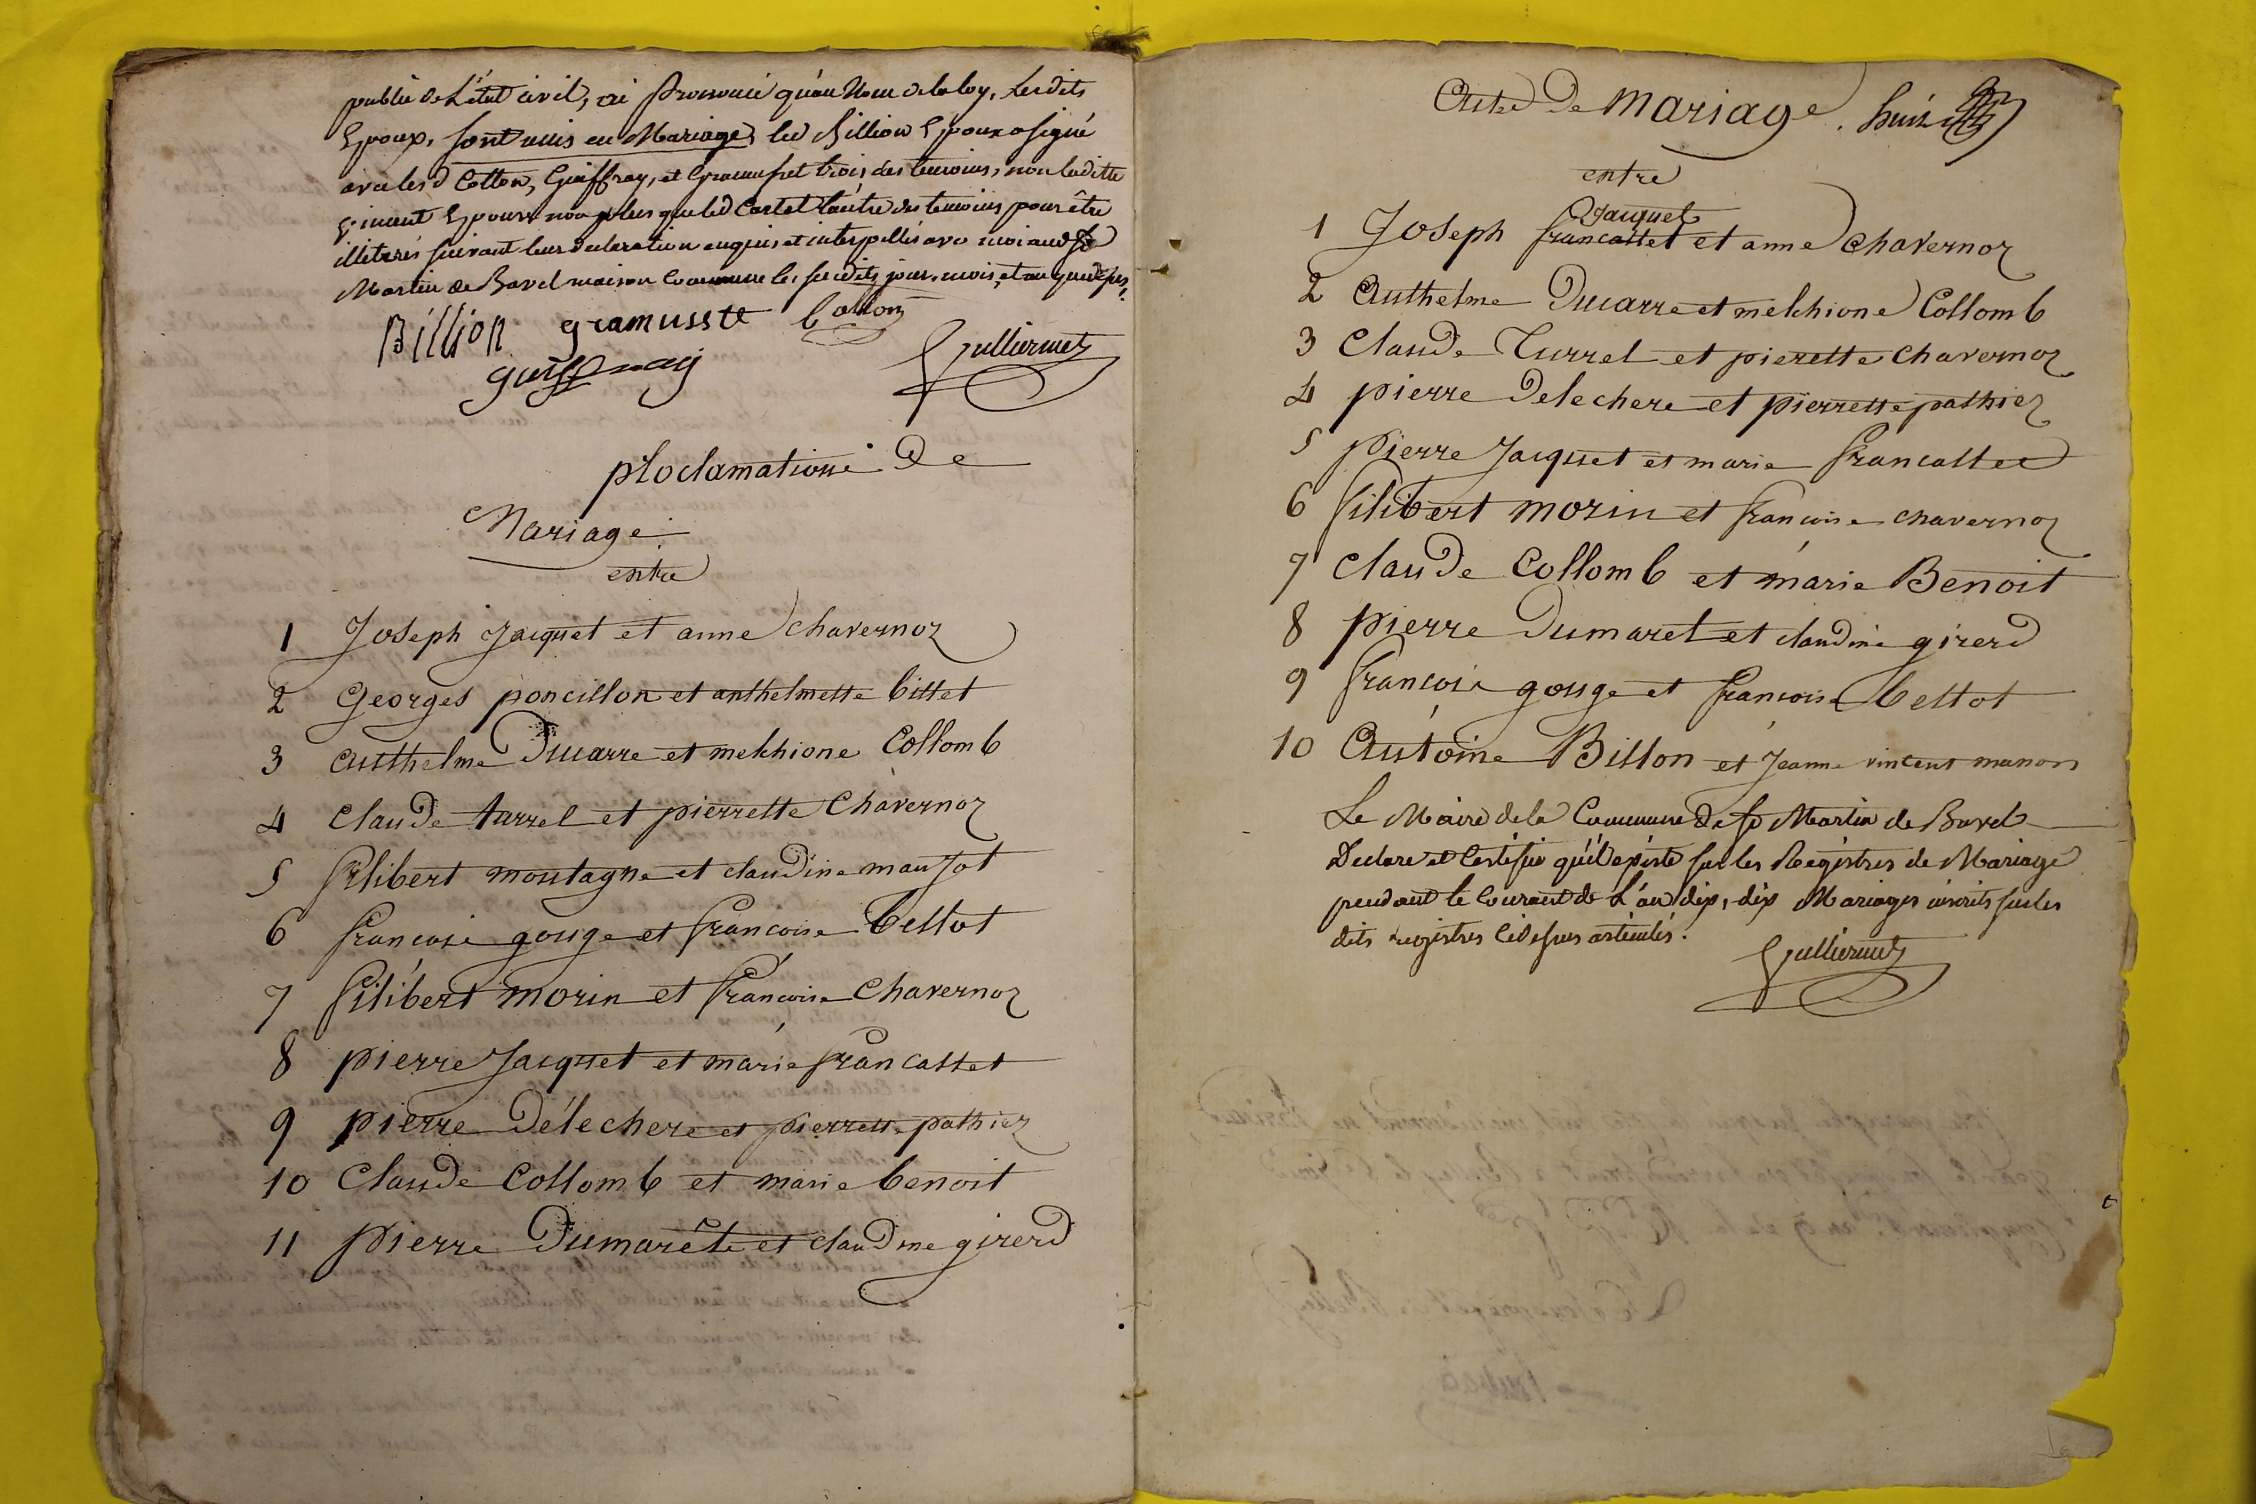 public de L'état civil, ai prononcé qu'au Nom de la loy, Lesdits
Epoux, sont unis en Mariage, led Billion Epoux a signé
avec lesd Cotton, Guiffray, et Gramusset trois des temoins, non laditte
Epouse non plus que led Castet l'autre des temoins pour être
illiterés suivant leur declaration enquis et interpellés avec moi aud St
Martin de Bavel maison Commune les susdits jour, mois, et an que dessus.
Billion gramusste Cotton
guiffray Gulliermet
ploclamationé De
Mariage
entre
1 Joseph Jacquet et anne chavernoz
2 Georges poncillon et anthelmette bittet
3 anthelme Ducarre et melchione Collomb
4 Claude turrel et pierrette Chavernoz
5 filibert montagne et claudine manjot
6 francois gouge et francoise bettot
7 filibert morin et francoise Chavernoz
8 pierre Jacquet et marie francattet
9 pierre Délechere et pierrette pathiez
10 Claude Collomb et marie benoit
11 pierre Dumarête et claudine girerd
Acte De mariage.
entre
Jacquet
1 Joseph francattet et anne Chavernoz
2 Anthelme Ducarre et melchione Collomb
3 Claude Turrel et pierette chavernoz
4 pierre Delechere et pierrette pathiez
5 pierre Jacquet et marie francattet
6 filibert morin et francoise chavernoz
7 Claude Collomb et marie Benoit
8 pierre Dumaret et claudine girerd
9 francois gouge et francoise bettot
10 Antoine Billon et Jeanne vincent manon
Le Maire de la Commune de St Martin de Bavel
Declare et Certifie qu'il existe sur les Registres de Mariage
pendant le courant de L'an dix, dix Mariages inscrits sur les
dits registres cidessus articulés.
Gulliermet